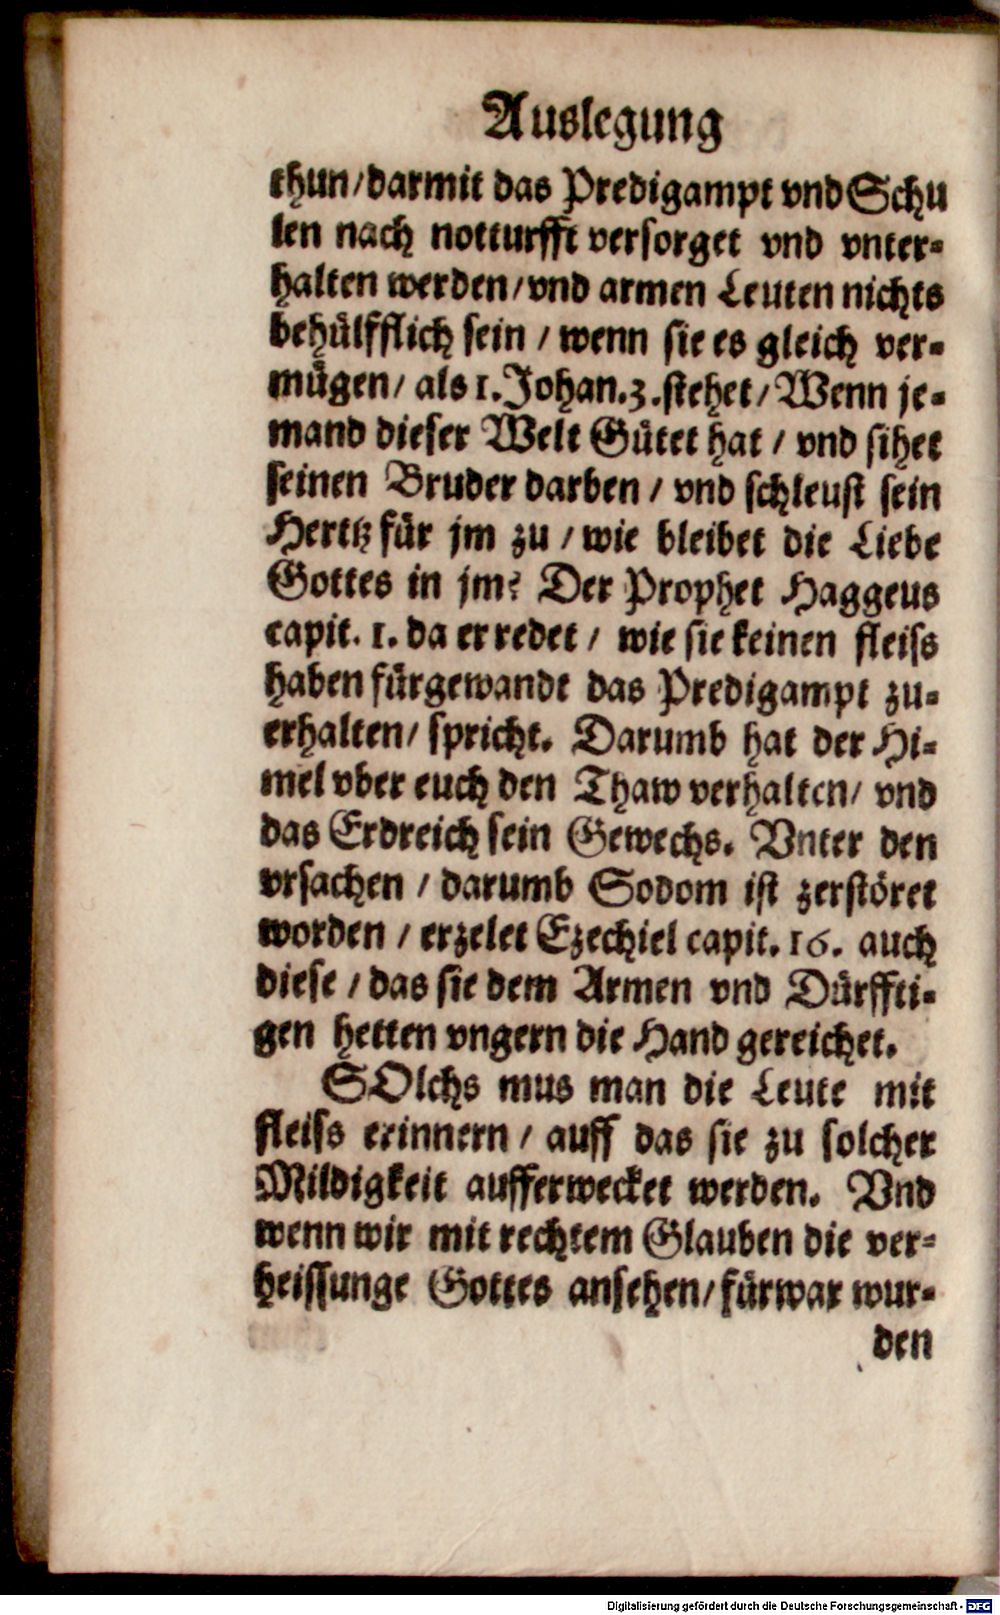 Auslegung
thun/darmit das Predigampt vnd Schu
len nach notturfft versorget vnd vnter-
halten werden/vnd armen Leuten nichts
behülfflich sein / wenn sie es gleich ver-
mügen/ als 1. Johan.3.stehet/ Wenn je-
mand dieser Welt Gütet hat / vnd sihet
seinen Bruder darben / vnd schleust sein
Hertz für jm zu / wie bleibet die Liebe
Gottes in jm? Der Prophet Haggeus
capit. 1. da er redet / wie sie keinen fleiss
haben fürgewandt das Predigampt zu-
erhalten/ spricht. Darumb hat der Hi-
mel vber euch den Thaw verhalten/ vnd
das Erdreich sein Gewechs. Vnter den
vrsachen / darumb Sodom ist zerstöret
worden / erzelet Ezechiel capit. 16. auch
diese / das sie dem Armen vnd Dürffti-
gen hetten vngern die Hand gereichet.
SOlchs mus man die Leute mit
fleiss erinnern / auff das sie zu solcher
Mildigkeit aufferwecket werden. Vnd
wenn wir mit rechtem Glauben die ver-
heissunge Gottes ansehen/ fürwar wur-
den
Digitalisierung gefördert durch die Deutsche Forschungsgemeinschaft - DFG